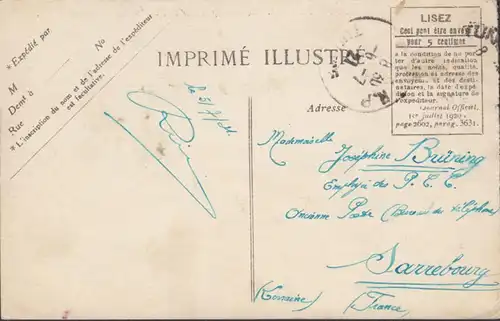 * Expédié par
M
No
Demt à
Rue
* L'inscription du nom et de l'adresse de l'expéditeur
est facultative.
IMPRIMÉ ILLUSTRÉ
LISEZ
Ceci peut être envoyé
pour 5 centimes
à la condition de ne porter
d'autre indication
que les noms, qualité,
profession et adresse des
envoyeurs et des destinataires,
la date d'expédition
et la signature de
l'expéditeur.
Journal Officiel,
1er juillet 1920
page 2602, parag. 3631.
R.P
Adresse
Mademoiselle
Joséphine Brüring
Employée des P.E.C
Ancienne Poste (Bureau des téléphones)
Sarrebourg
(Lorraine) (France)